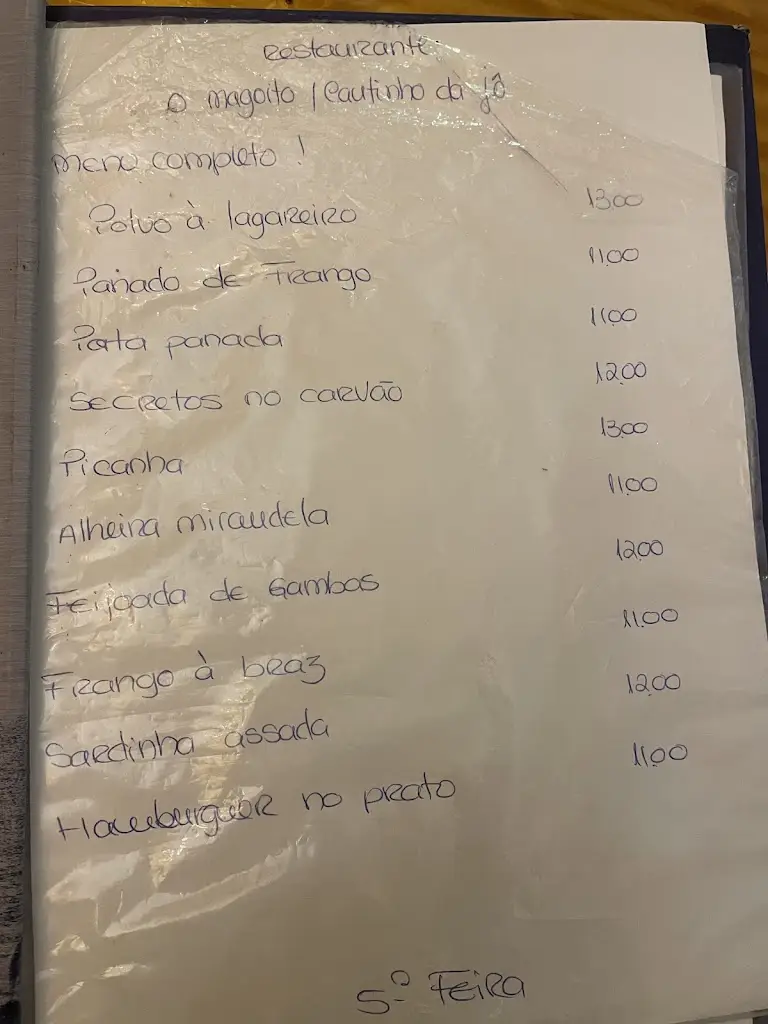 Restaurante
O magoito / Cautinho da jô
menu completo !
Polvo à lagareiro 13.00
Panado de Frango 11.00
Pota panada 11.00
Secretos no carvão 12.00
Picanha 13.00
Alheira mirandela 11.00
Feijoada de Gambas 12.00
Frango à braz 11.00
Sardinha assada 12.00
Hamburguer no prato 11.00
5.º Feira